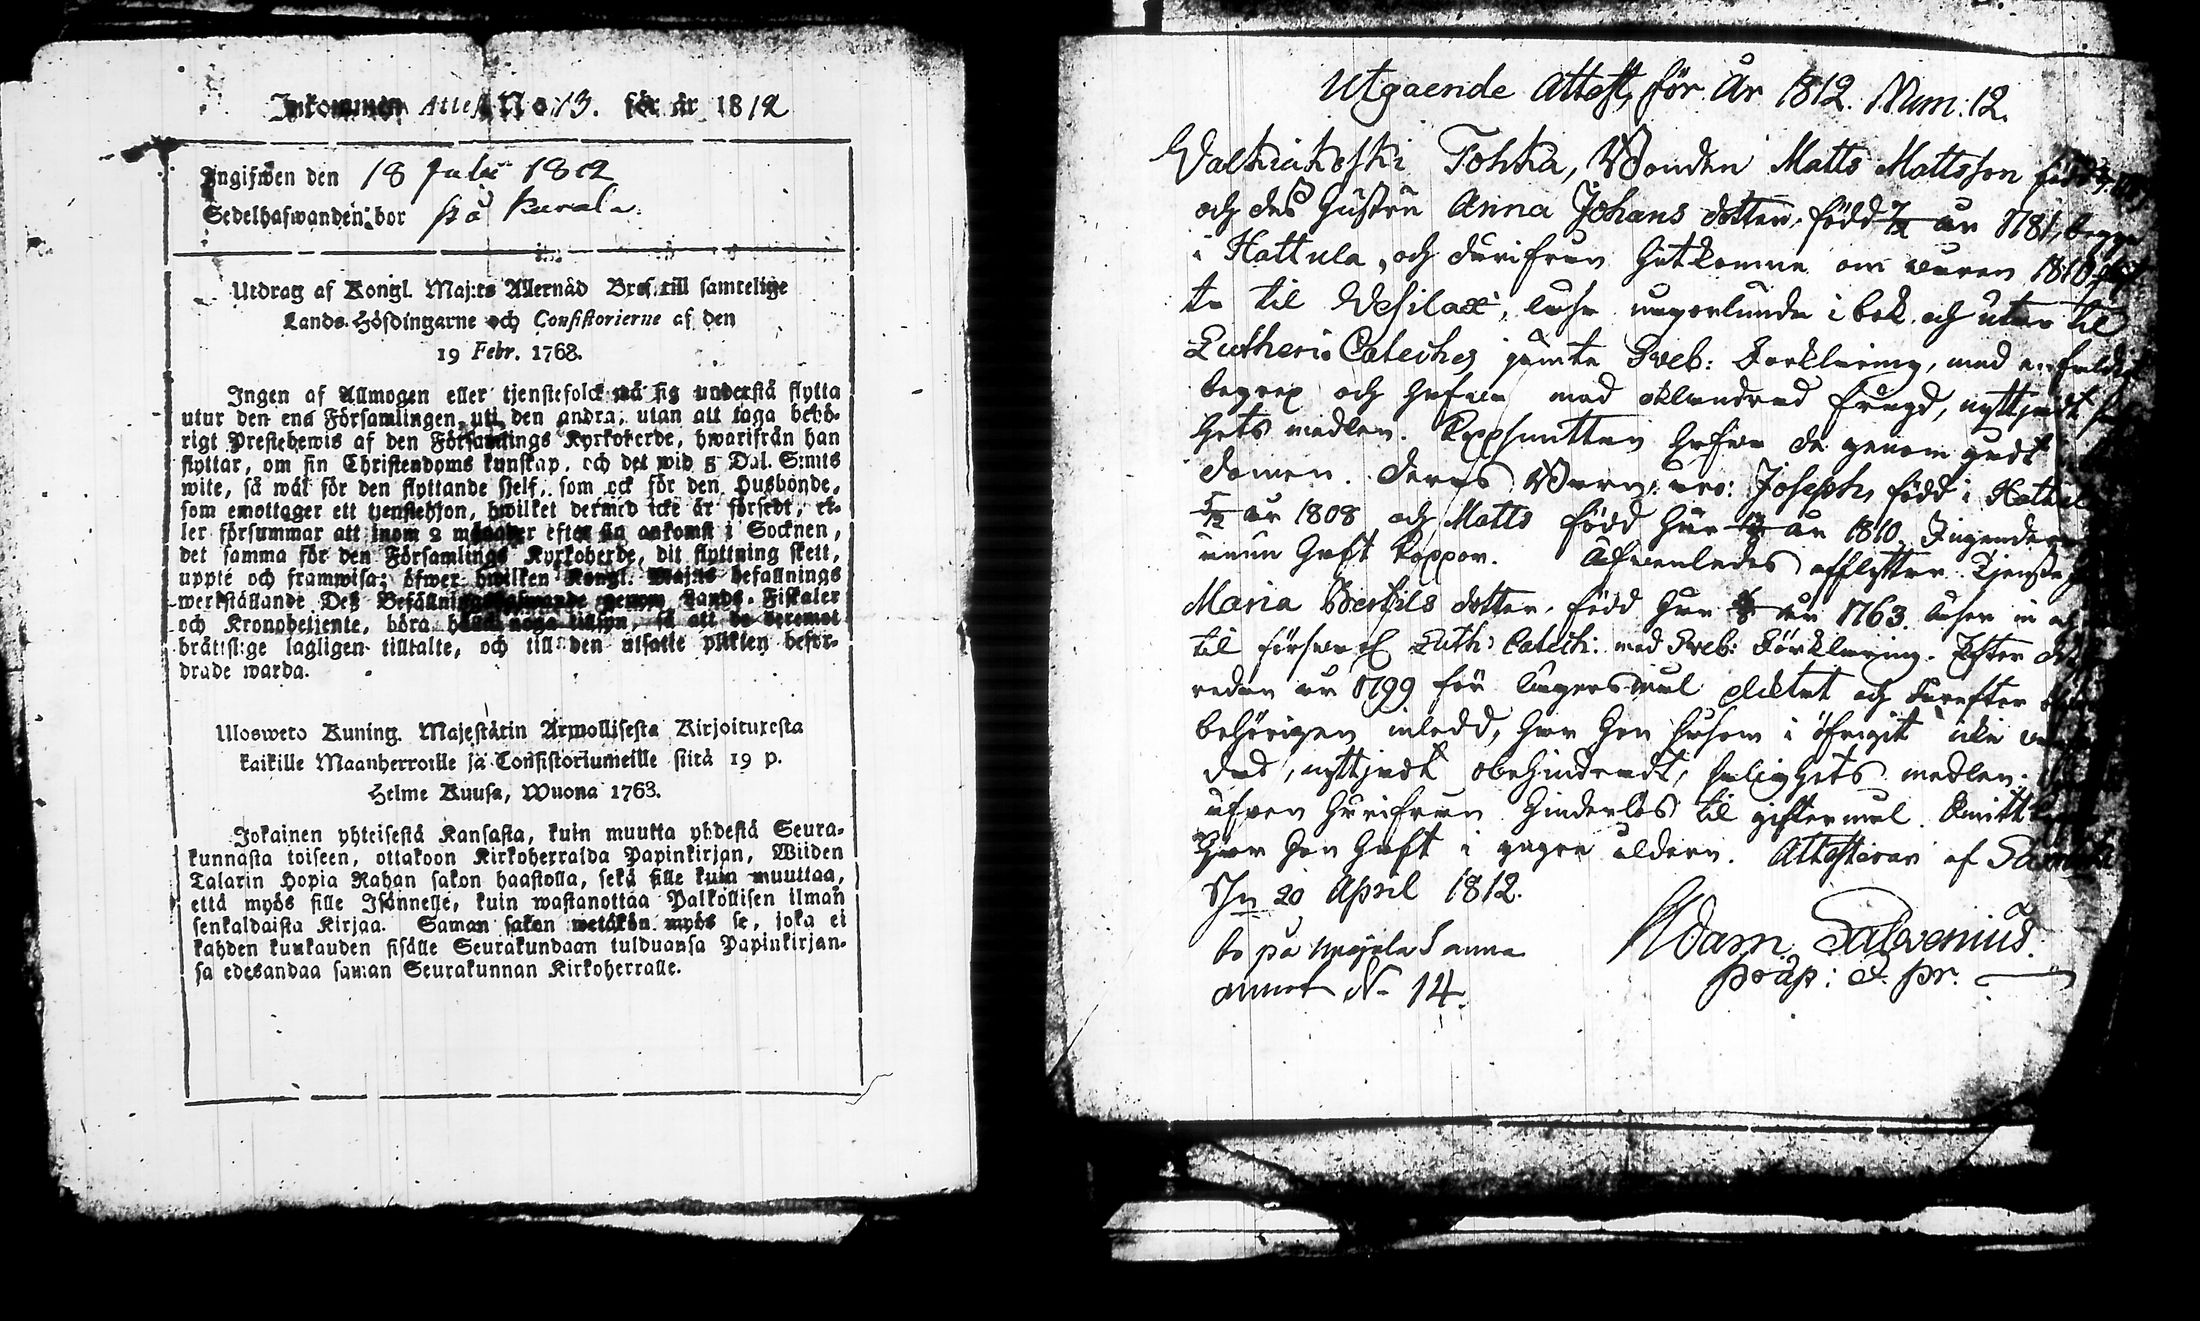 Inkommen Attest No: 13. för år 1812
Ingifwen den 18 Julii 1812
Sedelhafwanden bor på
Utdrag af Kongl. Maj:ts Allernåd Bref till samtelige
Lands-Höfdingarne och Consistorierne af den
19 Febr. 1768.
Ingen af Allmogen eller tjenstefolck må sig understå flytta
utur den ena Församlingen uti den andra, utan att taga behö-
rigt Prestebewis af den Församlings Kyrkoherde, hwarifrån han
flyttar, om sin Christendoms kunskap, och det wid 5 Dal. S:mts
wite, så wäl för den flyttande sjelf, som ock för den Husbonde,
som emottager ett tjenstehjon, hwilket dermed icke är försedt, el-
ler försummar att inom 2 månader efter sin ankomst i Socknen,
det samma för den Församlings Kyrkoherde, dit flyttning skett,
uppte och framwisa; öfwer hwilken Kongl. Maj:ts befallnings
werkställande Deß Befallningshafwande genom Lands-Fiskaler
och Kronobetjente, böra hafwa noga tillsyn, så att de deremot
bråttslige lagligen tilltalte, och till den utsatte plikten befor-
drade warda.
Ulosweto Kuning. Majestätin Armollisesta Kirjoituxesta
kaikille Maanherroille ja Consistoriumeille siitä 19 p.
Helme Kuusa, Wuona 1763.
Jokainen yhteisestä Kansasta, kuin muutta yhdestä Seura-
kunnasta toiseen, ottakoon Kirkoherralda Papinkirjan, Wiiden
Talarin Hopia Rahan sakon haastolla, sekä sille kuin muuttaa,
että myös sille Isännelle, kuin wastanottaa Palkollisen ilman
senkaldaista Kirjaa. Saman sakon wetäkön myös se, joka ei
kahden kuukauden sisälle Seurakundaan tulduansa Papinkirjan-
sa edesandaa saman Seurakunnan Kirkoherralle.
Utgaende Attest, för År 1812. Num: 12.
Walkiakoski Tohka, Bonden Matts Mattsson född
och des Hustru Anna Johans dotter, född år 1781, begge
i Hattula, och därifrån hitkomne om våren 1810
te til Wesilax, läsa i bok och utan til
Lutheri Cateches jämte Sveb: Förklaring, med enfaldigt
begrep och hafva med oklandrad frägd, nyttjadt
hets medlen. Koppsmittan hafva de genom gådt
domen. Deras Barn äro: Joseph, född i Hattul
år 1808, och Matts född här år 1810. Ingendera
haft koppor. Äfvenledes afflyttar Tjenste
Maria Bertils dotter, född här år 1763. läser in
til försvar Luth: Catech: med Sveb: Förklaring. Efter
redan år 1799 för Lägersmål pliktat och därefter
behörigen inledd, har hon
nyttjadt obehindradt, salighets medlen.
äfven härifrån hinderlös til giftermål.
har hon haft i yngre åldern. Attesterar af
d. 20 April 1812.
bo på
annot N 14.
Adam Salovenius.
præp: & pr.